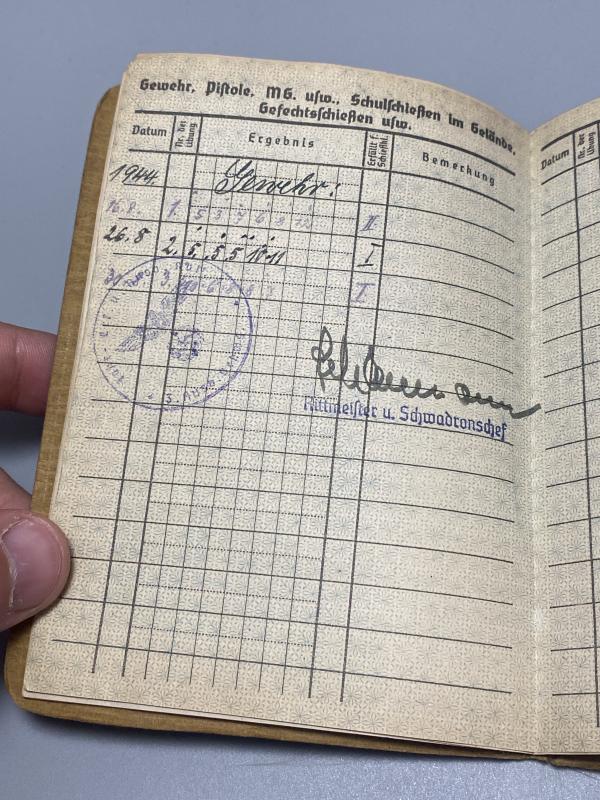 Gewehr, Pistole, MG. usw., Schulschießen im Gelände,
Gefechtsschießen usw.
Datum Nr. der Übung Ergebnis Erfüllt f. Schießkl. Bemerkung
Datum Nr. der Übung
1944. Gewehr:
16.8. 1. 5 3 7 6 9 II
26.8 2. 5 5 5 10 11 I
3. I
Rittmeister u. Schwadronschef